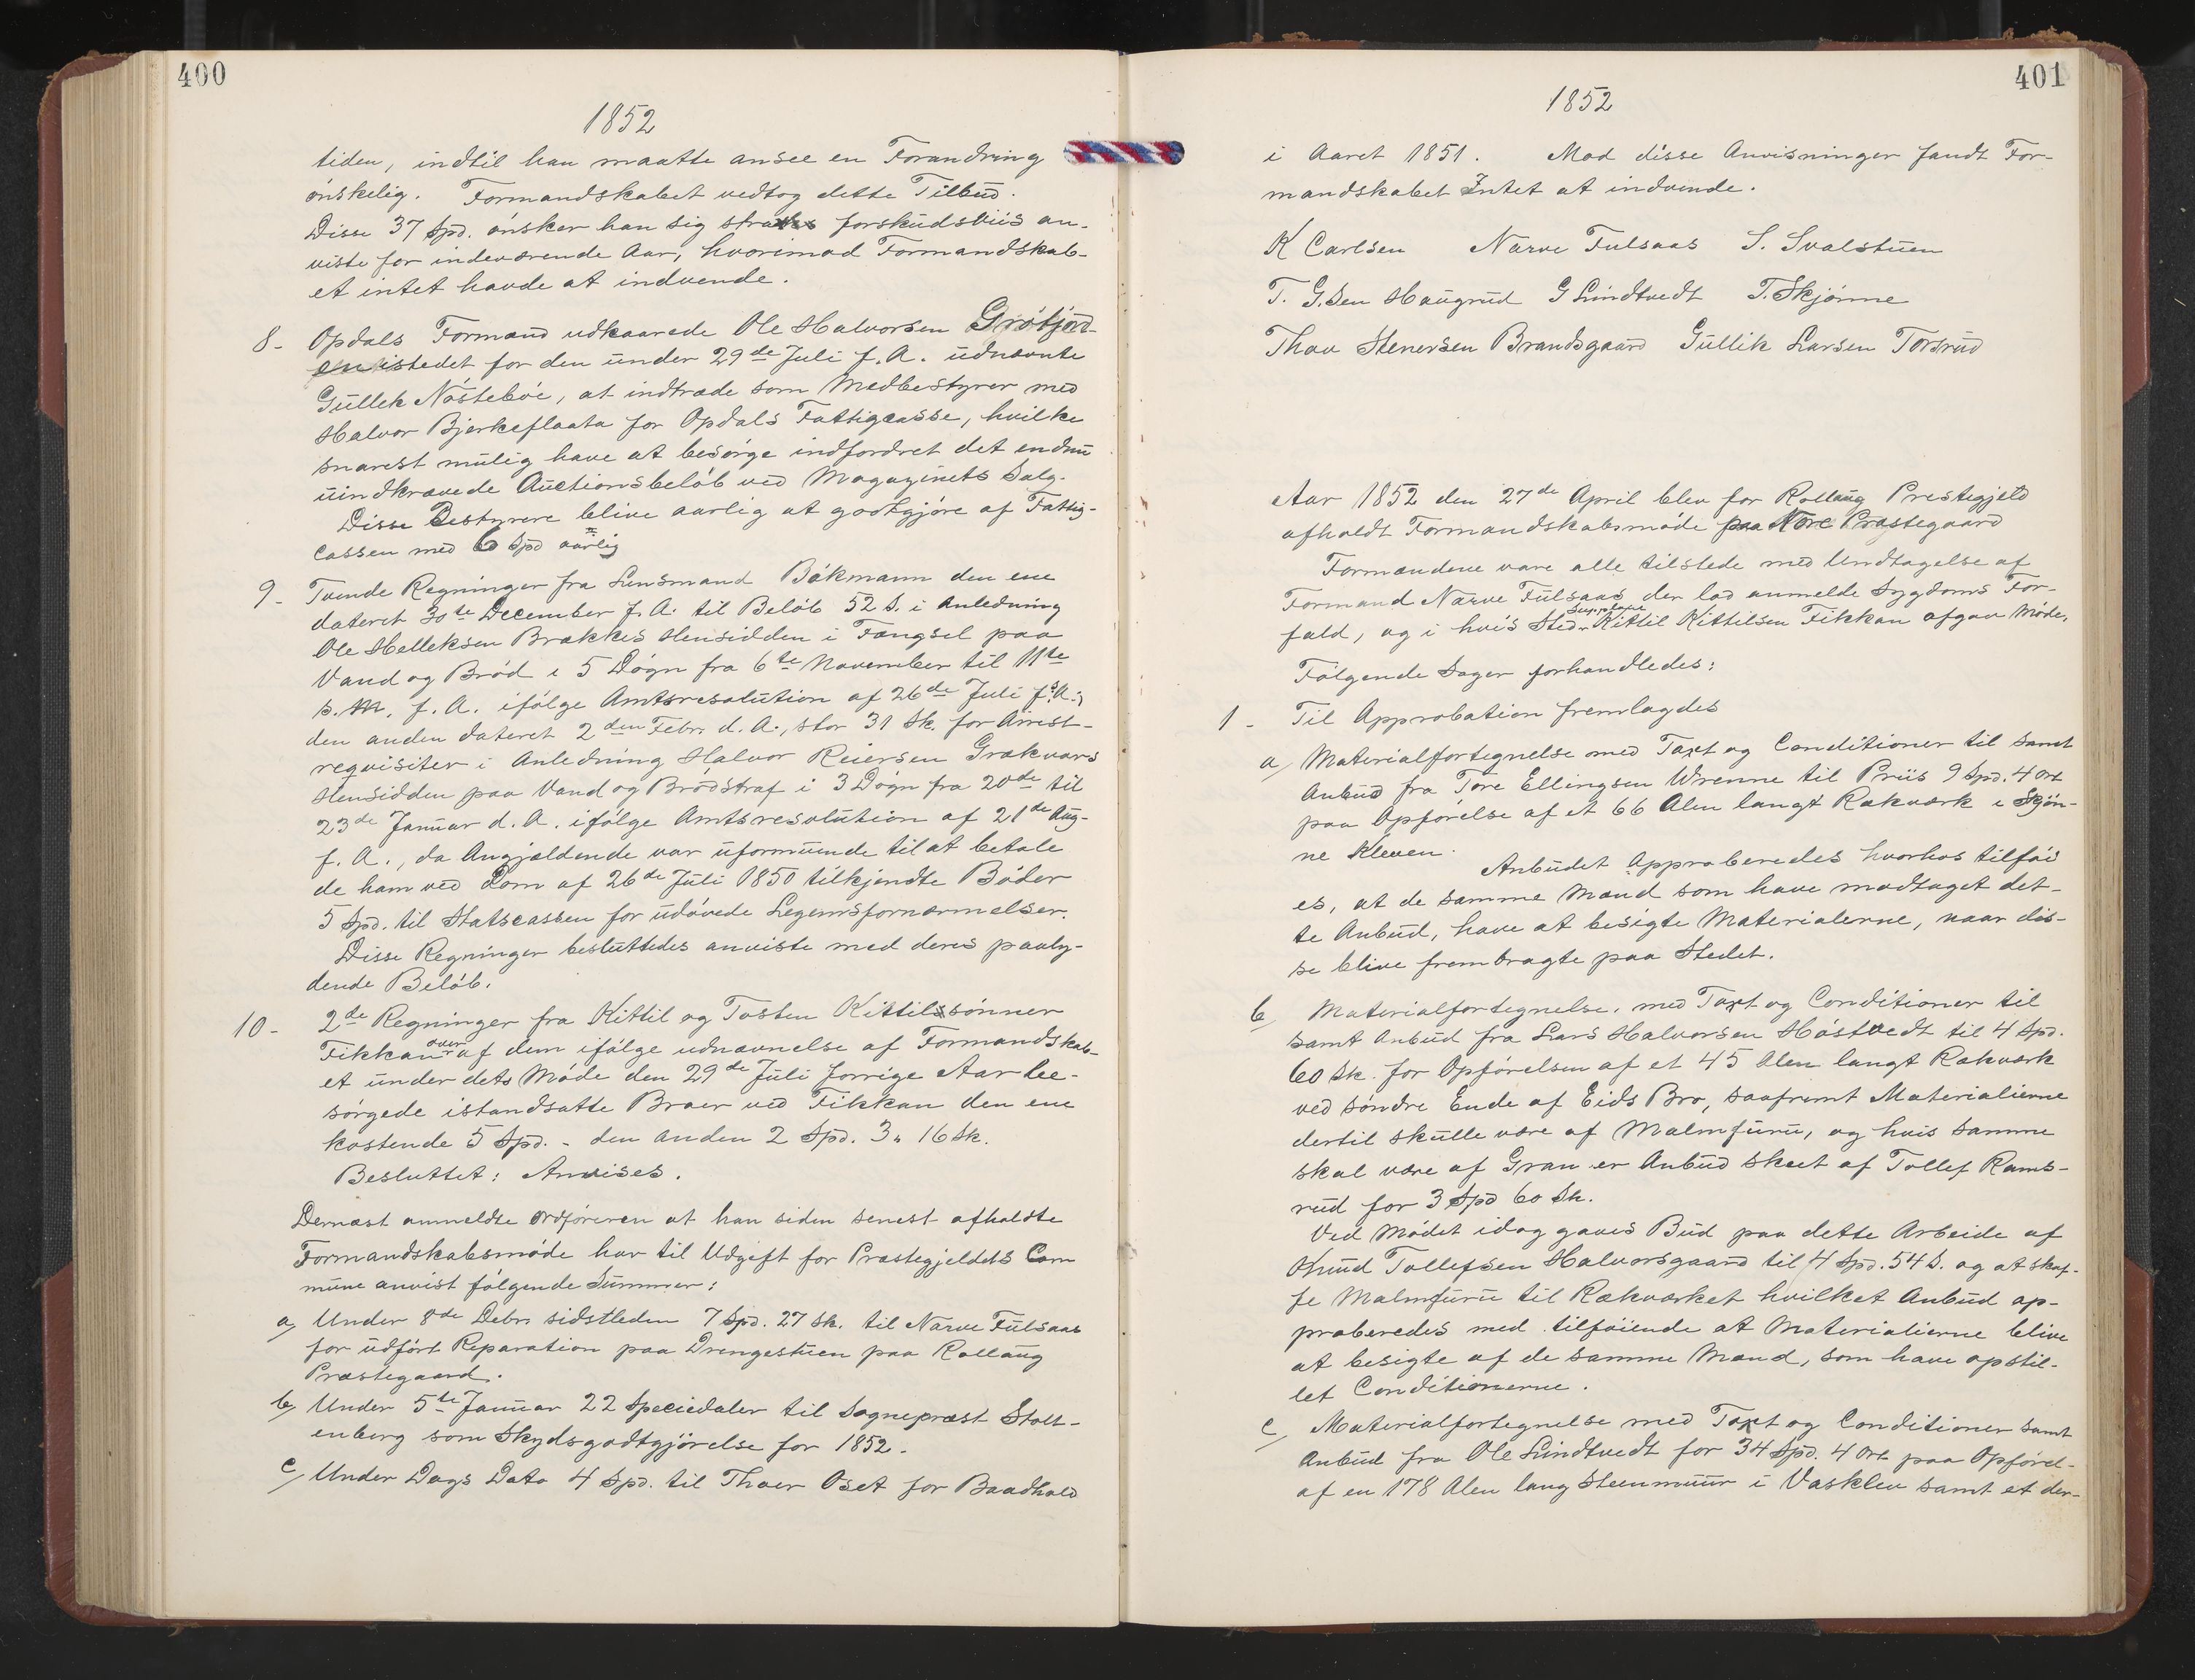 400
1852
tiden, indtil han maatte ansee en Forandring
ønskelig. Formandskabet vedtog dette Tilbud.
Disse 37 Spd. ønsker han sig strax forskudsviis an-
viste for indeværende Aar, hvorimod Formandskab-
et intet havde at indvende.
8- Opdals Formænd udkaarede Ole Halvorsen Grøtjord-
en istedet for den under 29de Juli f. A. udnævnte
Gullek Nøstebøe, at indtræde som Medbestyrer med
Halvor Bjerkeflaata for Opdals Fattigcasse, hvilke
snarest mulig have at besørge indfordret det endnu
uindkrævede Auctionsbeløb ved Magazinets Salg.
Disse Bestyrere blive aarlig at godtgjøre af Fattig-
cassen med 6 Spd aarlig
9- Tvende Regninger fra Lensmand Bøkmann den ene
dateret 30te December f. A. til Beløb 52 s. i Anledning
Ole Helleksen Brækkes Hensidden i Fængsel paa
Vand og Brød i 5 Døgn fra 6te November til 11te
s. M. f. A. ifølge Amtsresolution af 26de Juli f. A.;
den anden dateret 2den Febr. d. A., stor 31 Sk. for Arrest-
reqvisiter i Anledning Halvor Reiersen Grækvars
Hensidden paa Vand og Brødstraf i 3 Døgn fra 20de til
23de Januar d. A. ifølge Amtsresolution af 21de Aug-
f. A., da Angjældende var uformuende til at betale
de ham ved Dom af 26de Juli 1850 tilkjendte Bøder
5 Spd. til Statscassen for udøvede Legemsfornærmelser.
Disse Regninger besluttedes anviste med deres paaly-
dende Beløb.
10- 2de Regninger fra Kittil og Tosten Kittilssønner
Fikkan over af dem ifølge udnævnelse af Formandskab-
et under dets Møde den 29de Juli forrige Aar be-
sørgede istandsatte Broer ved Fikkan den ene
kostende 5 Spd. - den anden 2 Spd. 3 " 16 Sk.
Besluttet: Anvises.
Dernæst anmeldte Ordføreren at han siden senest afholdte
Formandskabsmøde har til Udgift for Præstegjeldets Com
mune anvist følgende Summer:
a, Under 8de Debr. sidstleden 7 Spd. 27 Sk. til Narve Fulsaas
for udført Reparation paa Drengestuen paa Rollaug
Præstegaard.
b, Under 5te Januar 22 Speciedaler til Sognepræst Stolt-
enberg som Skydsgodtgjørelse for 1852.
c, Under Dags Dato 4 Spd. til Thoer Øset for Baadhold
401
1852
i Aaret 1851. Mod disse Anvisninger fandt For-
mandskabet Intet at indvende.
K Carlsen Narve Fulsaas S. Svalstuen
T. G.sen Haugrud G Lindtvedt T. Skjønne
Thov Stenersen Brandsgaard Gullik Larsen Torsrud
Aar 1852 den 27de April blev for Rollaug Prestegjeld
afholdt Formandskabsmøde paa Nore Præstegaard
Formændene vare alle tilstede med Undtagelse af
Formand Narve Fulsaas der lod anmelde Sygdoms For-
fald, og i hvis Sted Suppleant Kittil Kittilsen Fikkan afgav Møde.
Følgende Sager forhandledes:
1- Til Approbation fremlagdes
a, Materialfortegnelse med Taxt og Conditioner til samt
Anbud fra Tore Ellingsen Wrenne til Priis 9 Spd. 4 Ort
paa Opførelse af et 66 Alen langt Rækværk i Skjøn-
ne Kleven.
Anbudet Approberedes hvorhos tilføi
es, at de samme Mænd som have modtaget det-
te Anbud, have at besigte Materialerne, naar dis-
se blive frembragte paa Stedet.
b, Materialfortegnelse. med Taxt og Conditioner til
samt Anbud fra Lars Halvorsen Høstvedt til 4 Spd.
60 Sk. for Opførelsen af et 45 Alen langt Rækværk
ved søndre Ende af Eids Bro, saafremt Materialierne
dertil skulle være af Malmfuru, og hvis samme
skal være af Gran er Anbud skeet af Tollef Rams-
rud for 3 Spd 60 Sk.
Ved Mødet idag gaves Bud paa dette Arbeide af
Knud Tollefsen Halvorsgaard til 4 Spd. 54 s. og at skaf-
fe Malmfuru til Rækværket hvilket Anbud ap-
proberedes med tilføiende at Materialierne blive
at besigte af de samme Mænd, som have opstil-
let Conditionerne.
c, Materialfortegnelse med Taxt og Conditioner samt
Anbud fra Ole Lindtvedt for 34 Spd. 4 Ort paa Opførel-
af en 178 Alen lang Steenmuur i Vasklev samt et der-